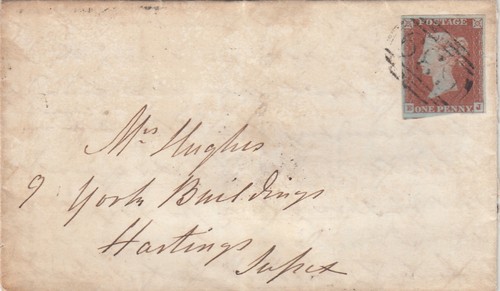 POSTAGE
ONE PENNY
Mrs Hughes
9 York Buildings
Hastings
Sussex